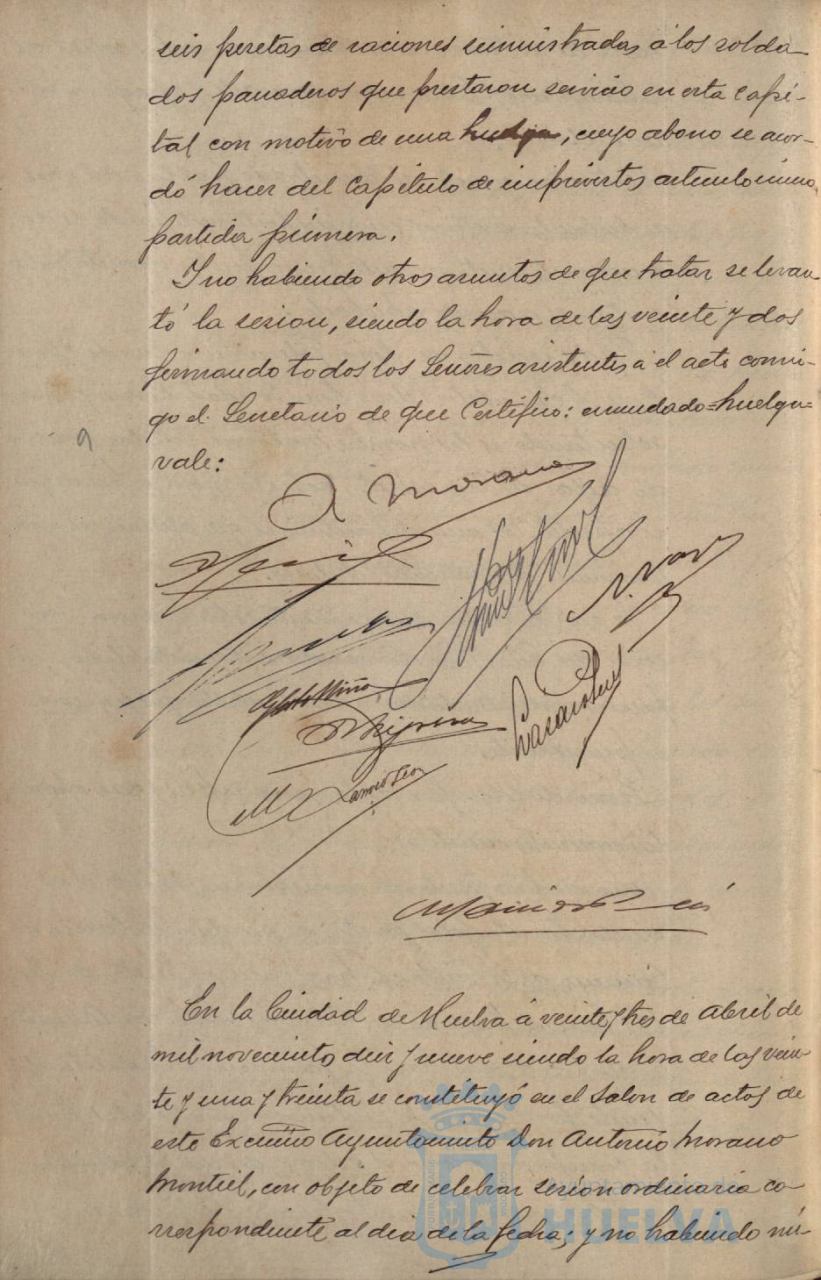 seis pesetas de raciones suministradas á los solda-
dos panaderos que prestaron servicio en esta Capi-
tal con motivo de una huelga, cuyo abono se acor-
dó hacer del Capítulo de imprevistos artículo único,
partida primera.
Y no habiendo otros asuntos de que tratar se levan-
tó la sesion, siendo la hora de las veinte y dos
firmando todos los Señores asistentes á el acto conmi-
go el Secretario de que Certifico: enmendado=huelga=
vale:
A Morano
En la Ciudad de Huelva á veinte y tres de Abril de
mil novecientos diez y nueve siendo la hora de las vein-
te y una y treinta se constituyó en el Salon de actos de
este Excmo Ayuntamiento Don Antonio Morano
Montiel, con objeto de celebrar sesion ordinaria co-
rrespondiente al dia de la fecha; y no habiendo nú-
HUELVA